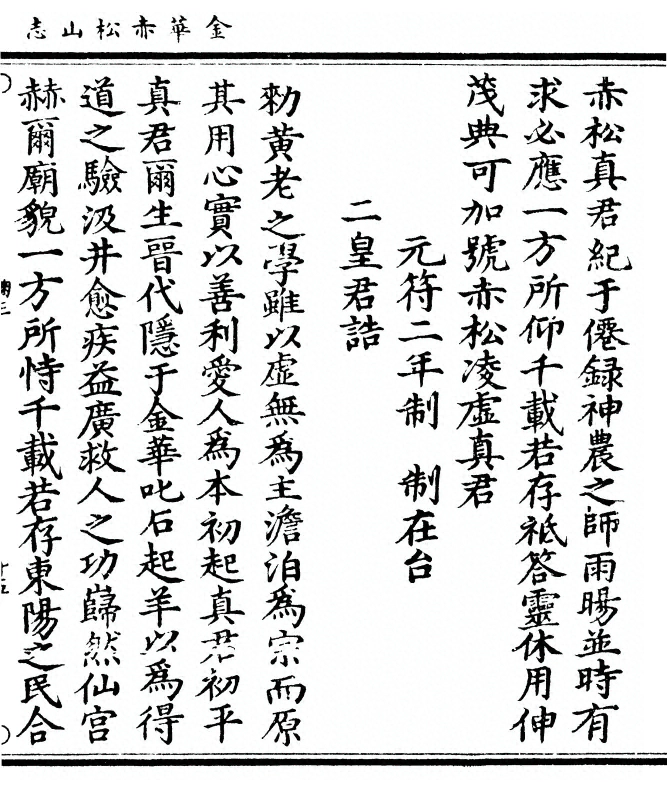 金華赤松山志
赤松真君紀于僊録神農之師雨暘並時有
求必應一方所仰千載若存祇答靈休用伸
茂典可加號赤松凌虛真君
元符二年制　制在台
二皇君誥
勑黄老之學雖以虛無爲主澹泊爲宗而原
其用心實以善利愛人爲本初起真君初平
真君爾生晉代隱于金華叱石起羊以爲得
道之驗汲井愈疾益廣救人之功巋然仙宮
赫爾廟貌一方所恃千載若存東陽之民合